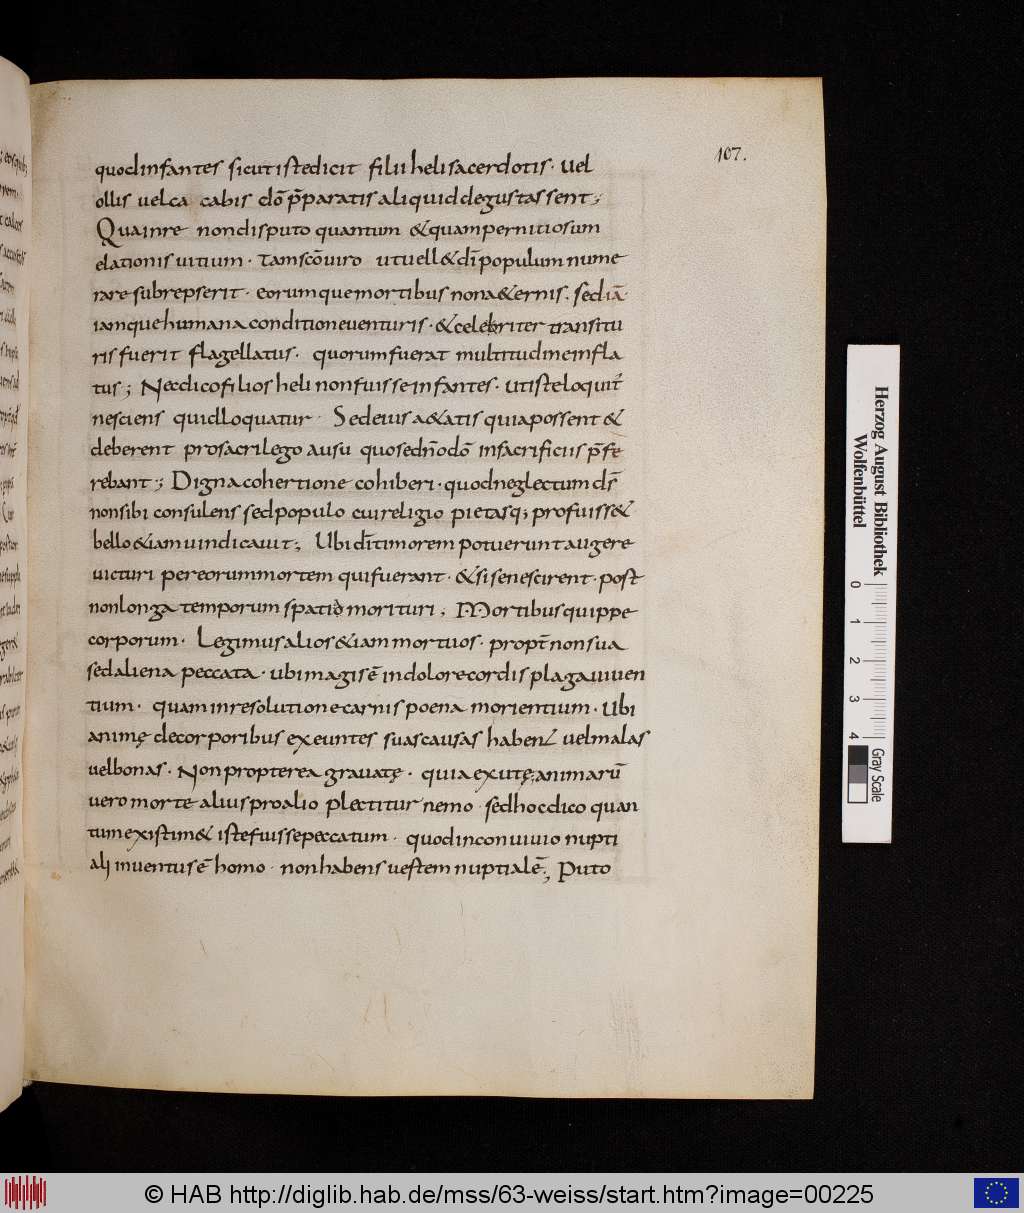 107.
quod infantes sicut iste dicit filii heli sacerdotis· vel
ollis vel ca cabis dō p̄paratis aliquid degustassent;
Qua in re non disputo quantum & quam pernitiosum
elationis vitium· tam scō viro ut vell& dn̄i populum nume
rare subrepserit· eorumque mortibus non a&ernis. sed iā
iamque humana conditione venturis· & celebriter transitu
ris fuerit flagellatus· quorum fuerat multitudine infla
tus; Nec dico filios heli non fuisse infantes· ut iste loquit̄
nesciens quid loquatur· Sed eius a&atis qui iapossent &
deberent pro sacrilego ausu quo se dn̄o dō in sacrificiis p̄fe
rebant; Digna cohertione cohiberi· quod neglectum ds̄
non sibi consulens sed populo cui religio pietasq; profuiss&
bello &iam vindicavit; Ubi dn̄i timorem potuerunt augere
victuri per eorum mortem qui fuerant· & si senescirent· post
non longa temporum spatio morituri; Mortibus quippe
corporum· Legimus alios &iam mortuos· propt̄ non sua
sed aliena peccata· ubi magis ē in dolore cordis plaga viven
tium· quam in resolutione carnis poena morientium· Ubi
animę de corporibus exeuntes suas causas haben& vel malas
vel bonas· Non propterea gravatę· quia exutę; animarū
vero morte alius pro alio plectitur nemo· sed hoc dico quan
tum existim& iste fuisse peccatum· quod in convivio nupti
ali inventus ē homo· non habens vestem nuptialē; Puto
Herzog August Bibliothek
Wolfenbüttel
0 1 2 3 4
Gray Scale
© HAB http://diglib.hab.de/mss/63-weiss/start.htm?image=00225